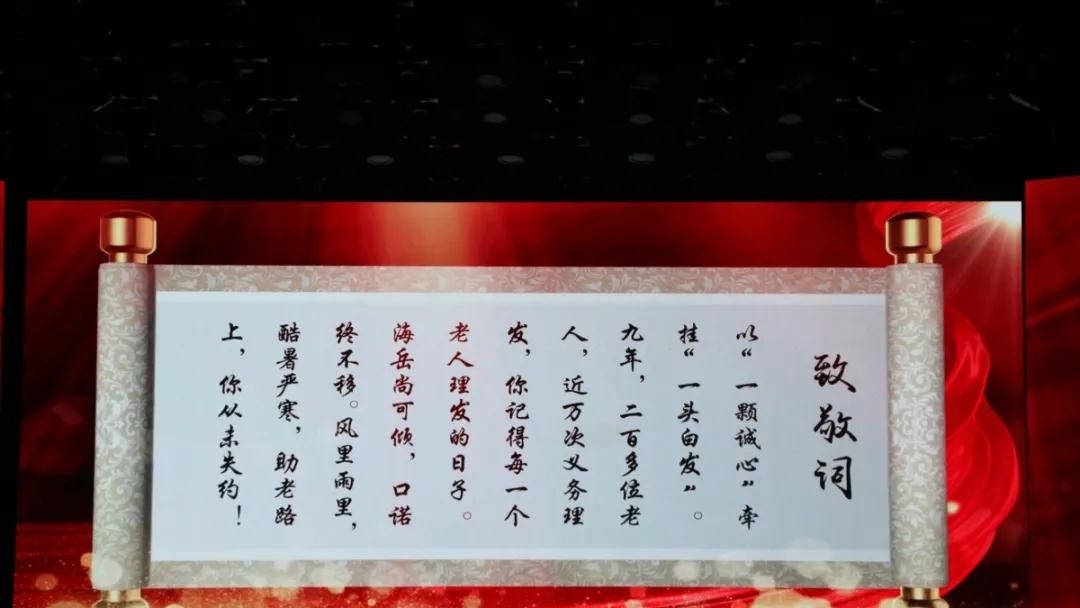 致敬词
以“一颗诚心”牵
挂“一头白发”。
九年，二百多位老
人，近万次义务理
发，你记得每一个
老人理发的日子。
海岳尚可倾，口诺
终不移。风里雨里，
酷暑严寒，助老路
上，你从未失约！